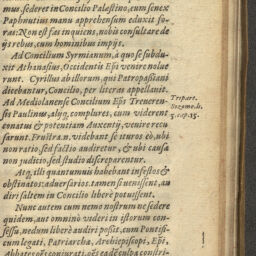 mus. sederet in Concilio Palestino, cum senex
Paphnutius manu apprehensum eduxit fo-
ras: Non est fas inquiens, nobis consultare de
ijs rebus, cum hominibus impijs.
Ad Concilium Syrmianum, a quo se subdu-
xit Athanasius, Occidentis Epi venire nolue
runt. Cyrillus ab illorum, qui Patropassiani
dicebantur, Concilio, per literas appellauit.
Ad Mediolanense Concilium Eps Treueren-
sis Paulinus, alijq; complures, cum viderent
conatus & potentiam Auxentij, venire recu
sarunt. Frustra .n. videbant se ituros eò, ubi
non ratio, sed factio audiretur, & ubi causa
non judicio, sed studio discreparentur.
Atq; illi quantumuis habebant infestos &
obstinatos aduersarios, tamen si uenissent, au
diri saltem in Concilio liberè potuissent.
Nunc autem cum nemo nostrum ne sedere
quidem, aut omninò videri in istorum con-
sessu, nedum liberè audiri possit, cum Pontifi-
cum legati, Patriarchæ, Archiepiscopi, Epi,
Abbates oēs conjurati, oēs eadē culpa constri-
Tripart.
Sozome. li.
5. cap. 15.